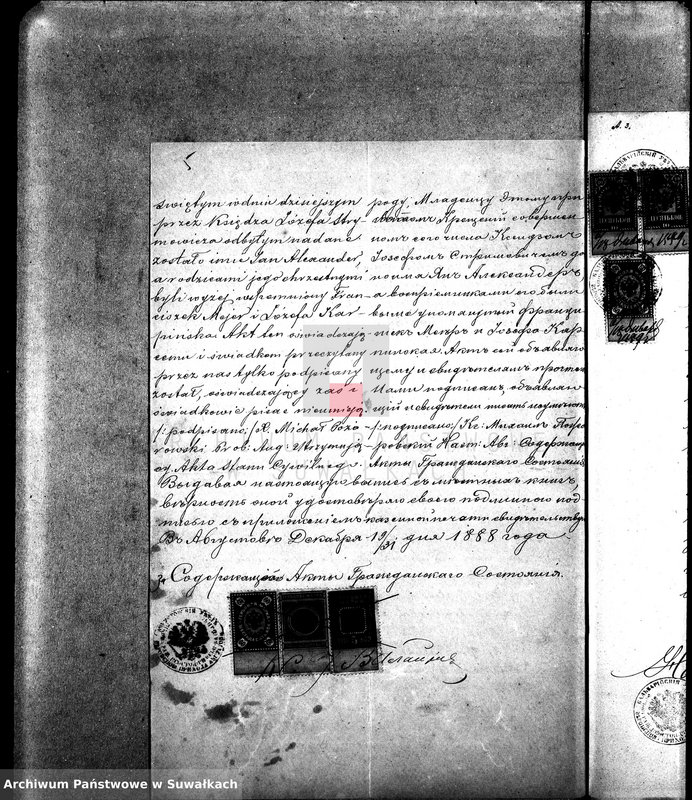 А. 3.
5
świętym w dniu dzisiejszym
przez Księdza Józefa Stry-
mowicza odbytym nadane
zostało imie Jan Alexander,
a rodzicami jego chrzestnymi
byli wyżej wspomniony Fran-
ciszek Mejer i Józefa Kar-
pińska. Akt ten oświadczają-
cemu i świadkom przeczytany
przez nas tylko podpisany
został, oświadczający zaś i
świadkowie pisać nieumieją.
/:podpisano:/ X. Michał
Prob: Aug: Utrzymują-
cy Akta Stanu Cywilnego.
роду, Младенцу этому при
Святом Крещении совершен-
ном сего числа Ксендзом
Іосифом Стримовичем да-
но имя Ян Александер
а восприемниками его были
выше упомянутый Франци-
шек Меер и Іозефа Кар-
пинская. Акт сей объявляю-
щему и свидетелям прочтен
Нами подписан, объявляю-
щий и свидетели писать неумеют
/:подписано:/ Кс: Михаил
Наст: Авг: Содержащ
Акты Гражданскаго Состоянія
Выдавая настоящую выпись с местных книг,
верность оной удостоверяю своею подписью под-
с приложеніем казенной печати
В Августове Декабря 19/31 дня 1888 года
Содержащій Акты Гражданскаго Состоянія.
Archiwum Państwowe w Suwałkach